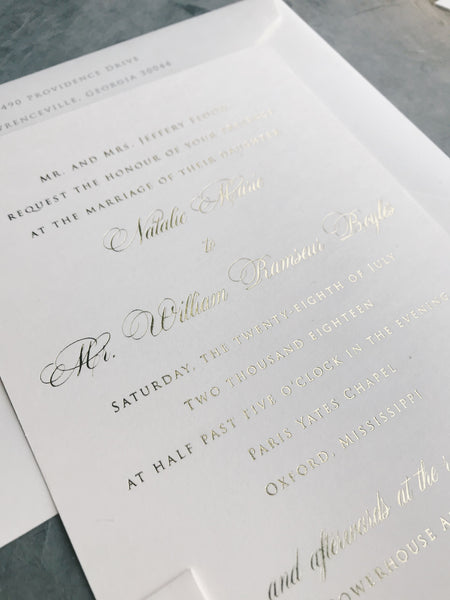 490 Providence Drive
Georgia 30044
Mr. and Mrs. Jeffery Flood
request the honour of your
at the marriage of their daughter
Natalie Marie
to
Mr. William Ramseur Boyles
Saturday, the twenty-eighth of July
Two thousand eighteen
at half past five o'clock in the evening
Paris Yates Chapel
Oxford, Mississippi
and afterwards at the